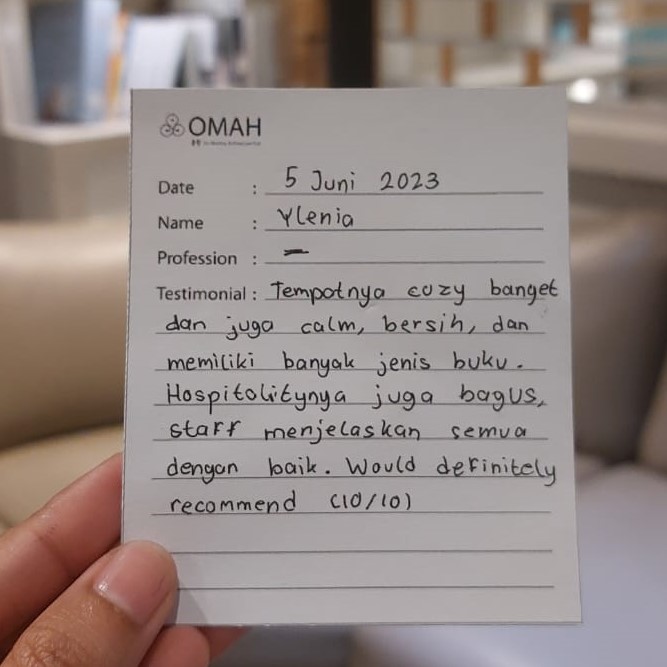 OMAH
Date : 5 Juni 2023
Name : Ylenia
Profession : —
Testimonial : Tempatnya cozy banget
dan juga calm, bersih, dan
memiliki banyak jenis buku.
Hospitalitynya juga bagus,
staff menjelaskan semua
dengan baik. Would definitely
recommend (10/10)